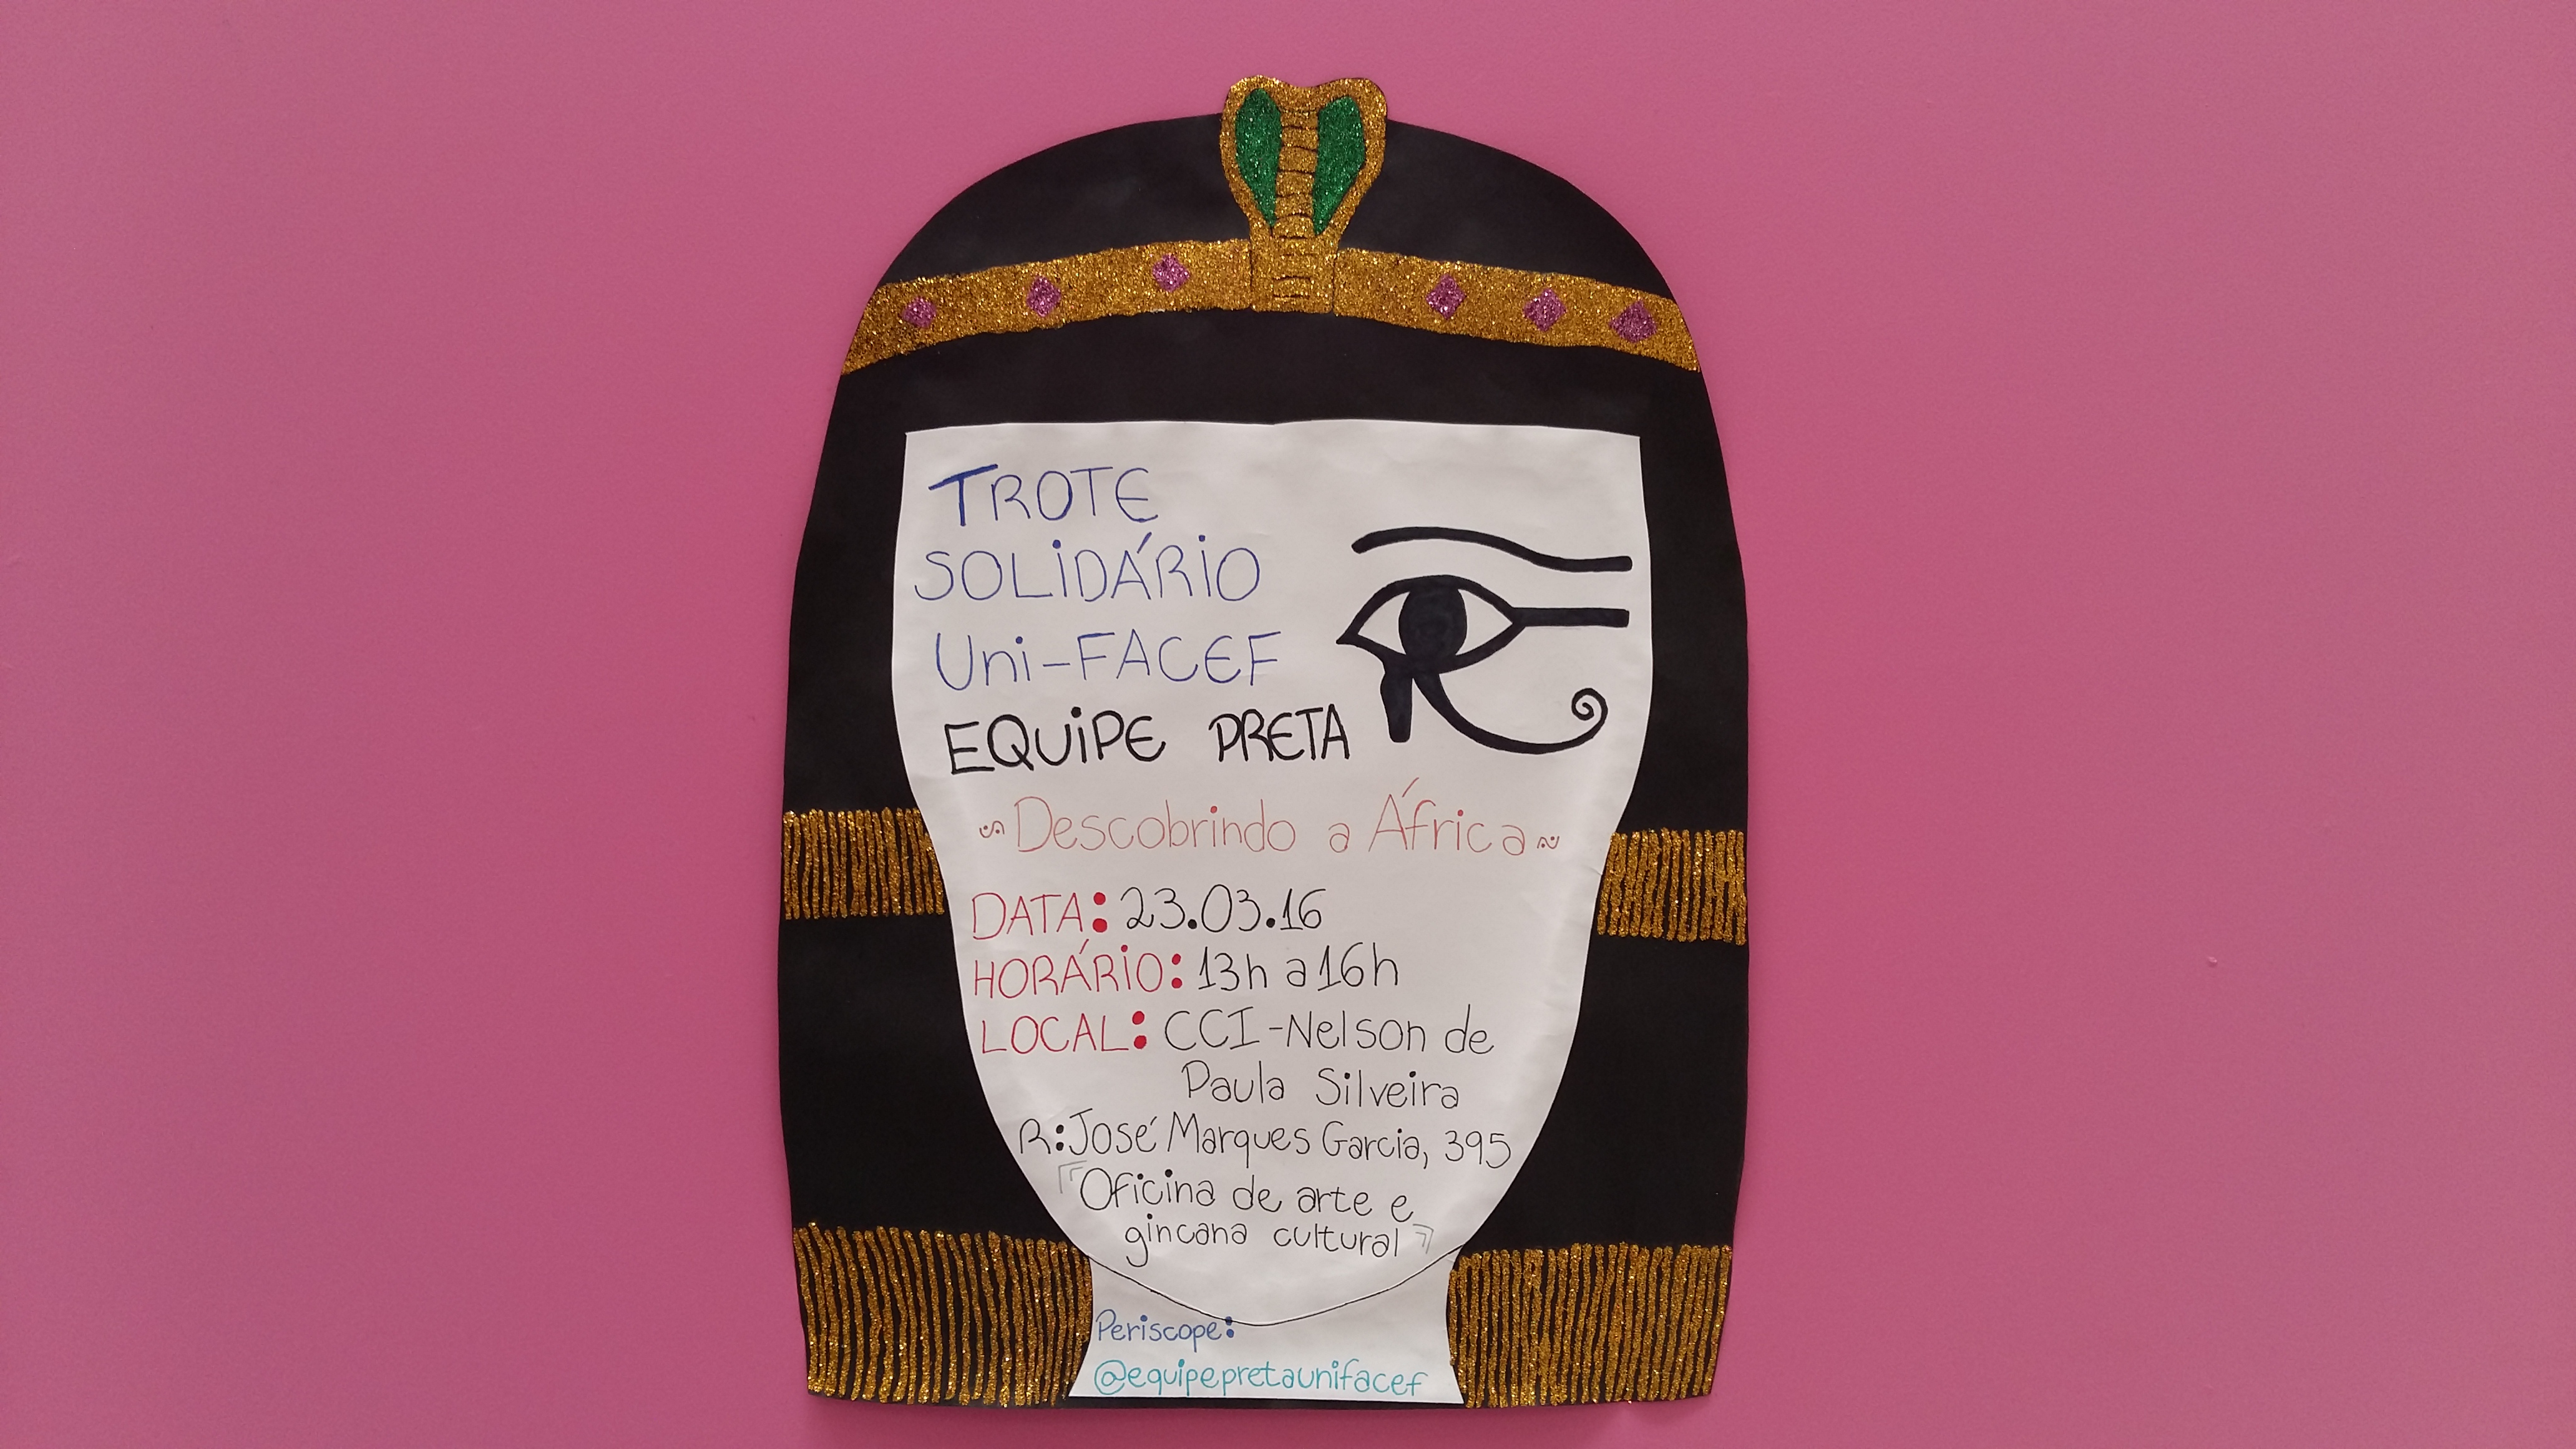 TROTE
SOLIDÁRIO
Uni-FACEF
EQUIPE PRETA
~Descobrindo a África~
DATA: 23.03.16
HORÁRIO: 13h a 16h
LOCAL: CCI-Nelson de
Paula Silveira
R: José Marques Garcia, 395
"Oficina de arte e
gincana cultural"
Periscope:
@equipepretaunifacef